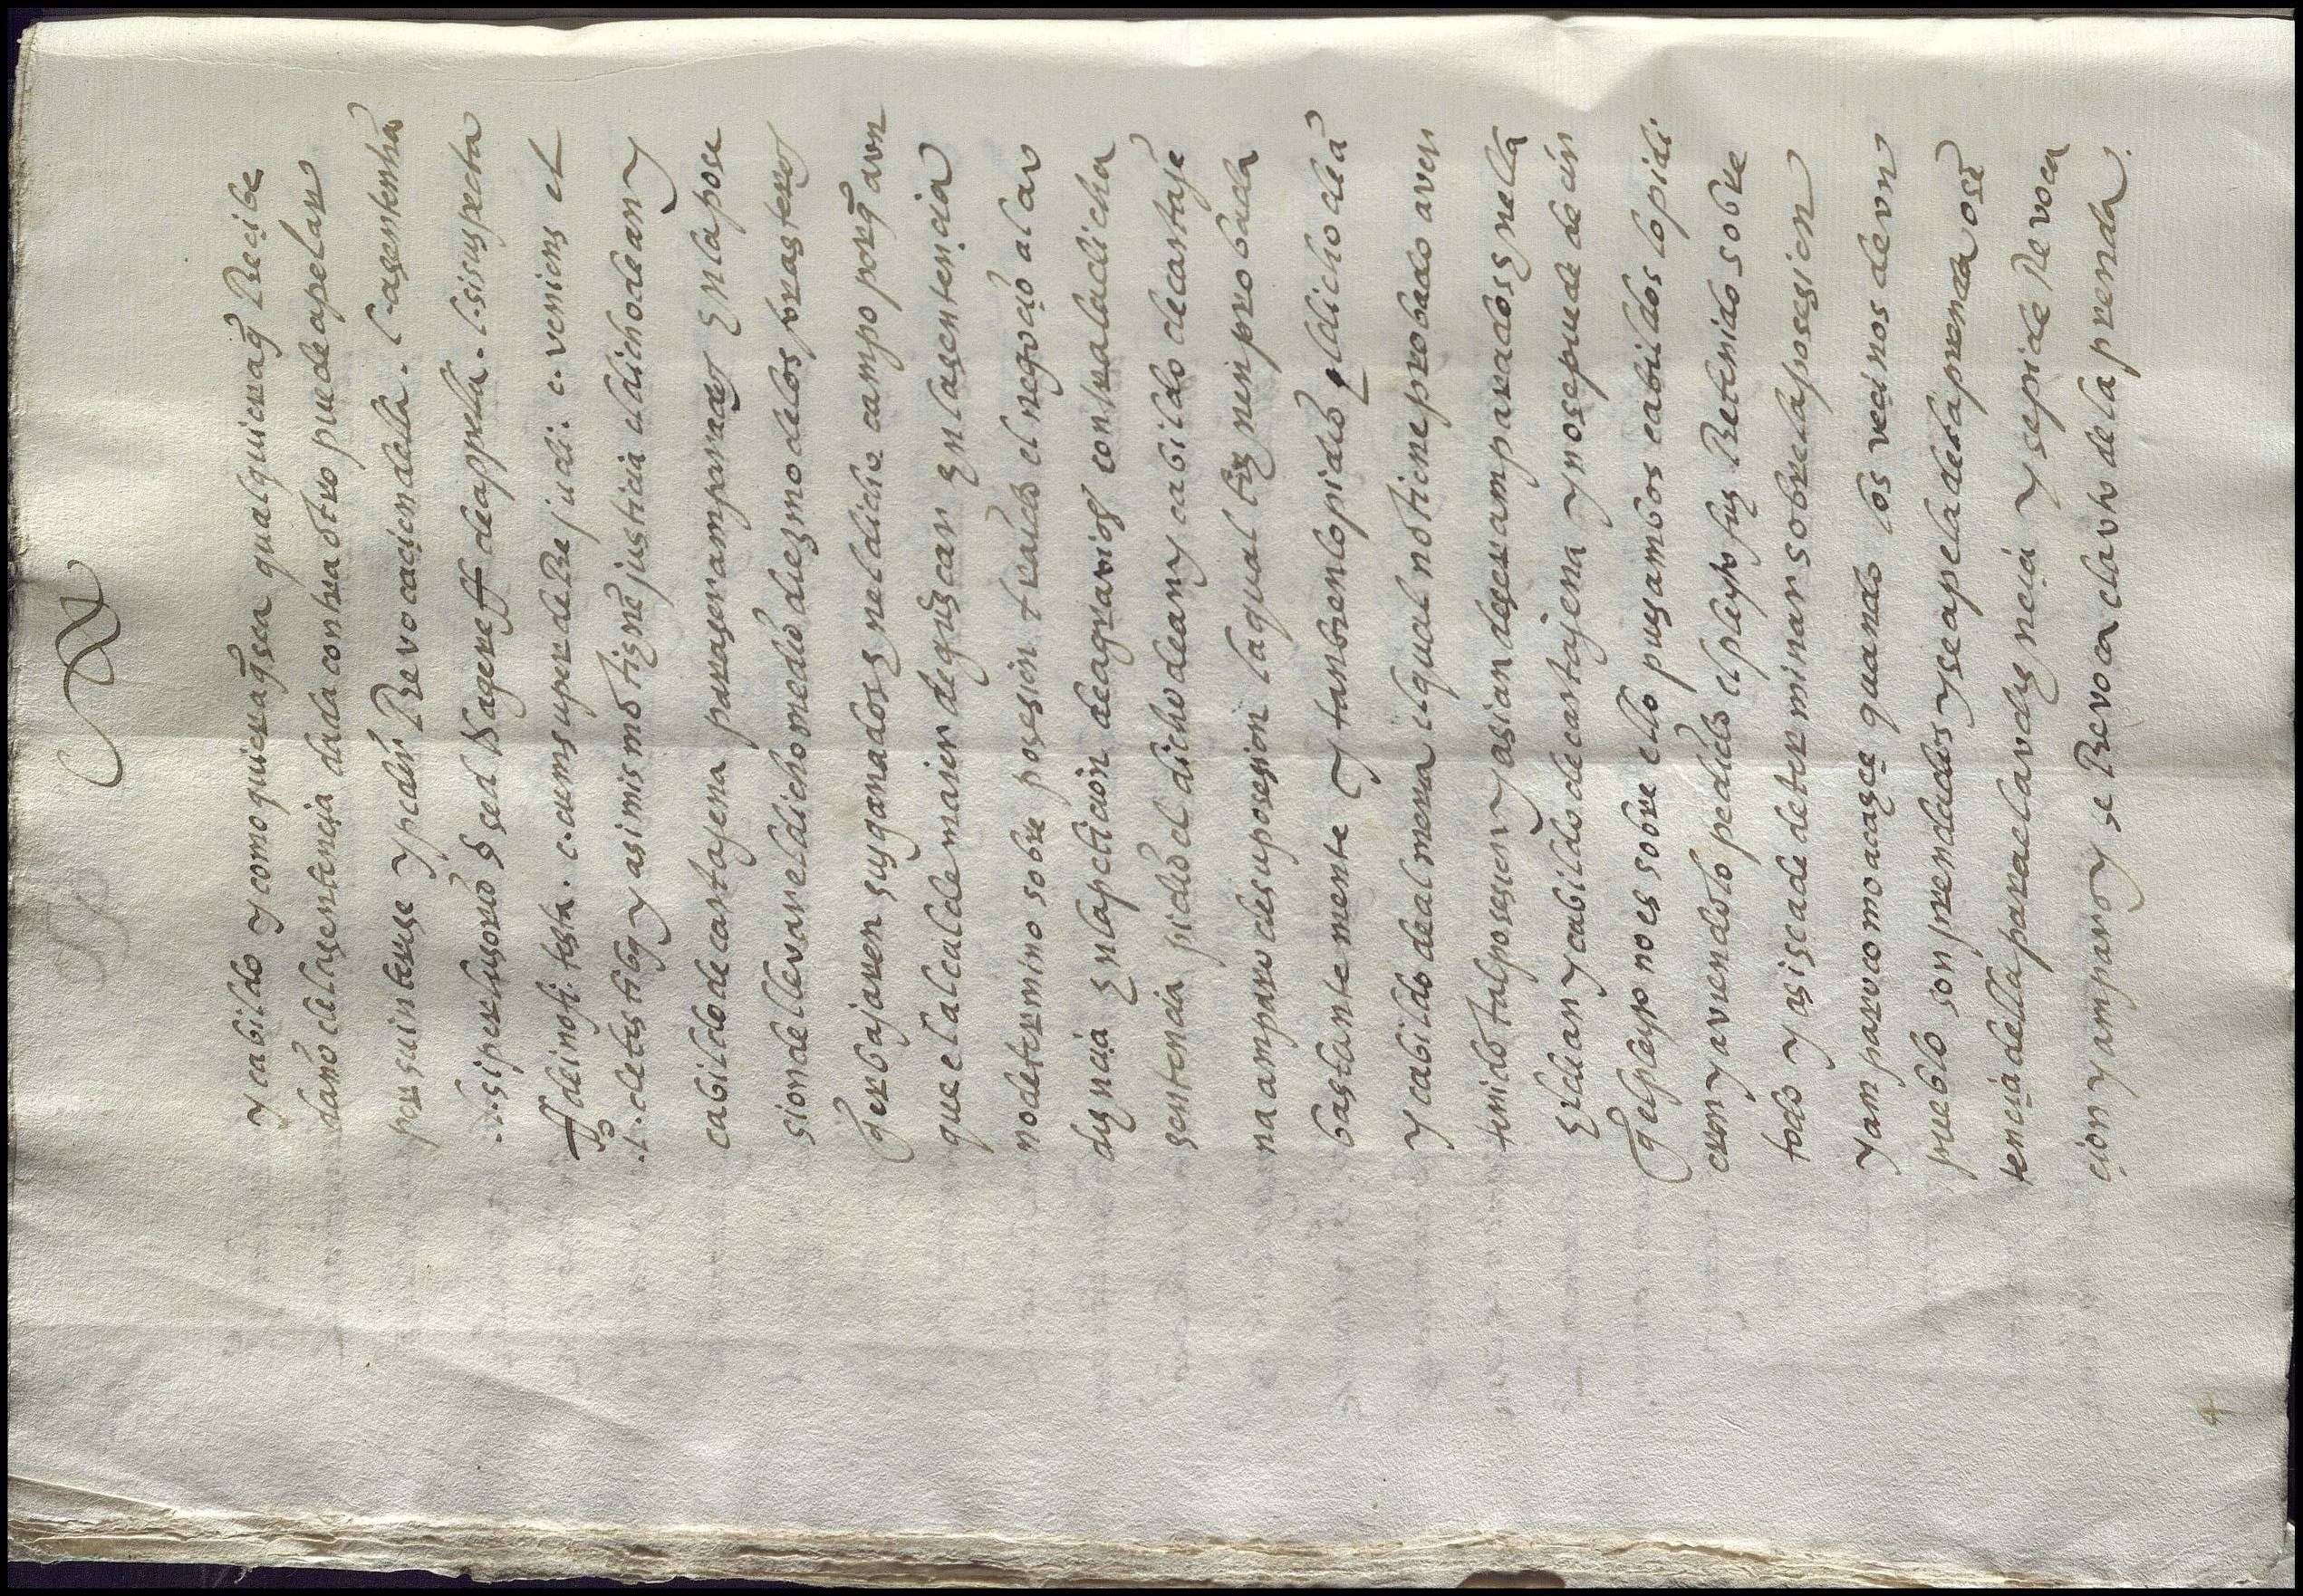 y cabildo y como quiera q̃ sea qualquiera q̃ Recibe
daño de la sentencia dada contra otro puede apelar
por su interese y pedir Revocacion della . l. a sententia
.l. si perlusorio § sed si agere ff de appella. l. si suspecta
ff de inoffi. testa. c. cum super de Re judi. c. veniens el
.1. de testibꝫ y asi mismo tiene justicia el dicho dean y
cabildo de cartajena para ser amparados en la pose
sion de llevar el dicho medio diezmo de los frasteros
q̃ erbajaren sus ganados en el dicho campo porq̃ aun
que el alcalde maior de guescar en la sentencia
no determino sobre posesion traido el negocio a la au
diencia en la peticion de agravios contra la dicha
sentencia pidio el dicho dean y cabildo de cartaje
na amparo de su posesion la qual tienen probada
bastantemente y tanbien lo pidio el dicho deã
y cabildo de almeria el qual no tiene probado aver
tenido tal posesion y asi an de ser amparados en ella
el dean y cabildo de cartajena y no se puede decir
q̃ el pleyto no es sobre ello pues ambos cabildos lo pidi
eron y aviendolo pedido el pleyto fue Retenido sobre
todo y asi se a de determinar sobre la posesion
y amparo como acaece quando los vecinos de un
pueblo son prendados y se apela de la prenda o sẽ
tencia della para el audiencia y se pide Revoca
cion y amparo y se Revoca el auto de la prenda.